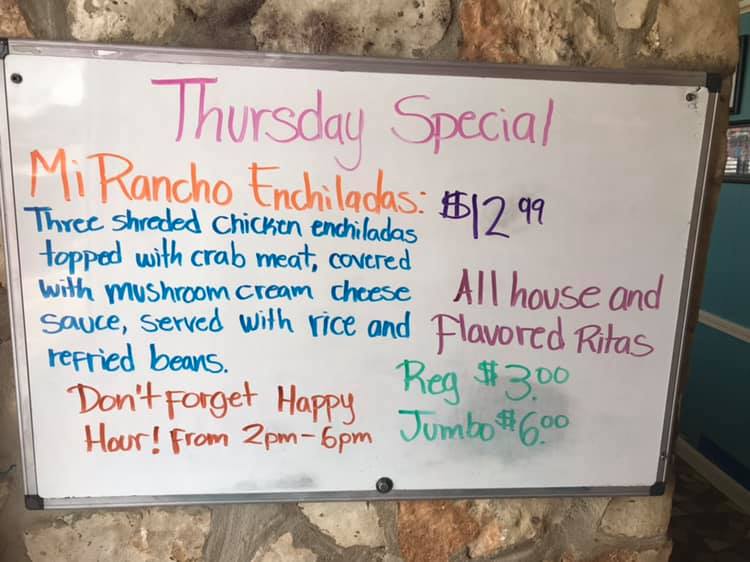 Thursday Special
Mi Rancho Enchiladas: $12.99
Three shreded chicken enchiladas
topped with crab meat, covered
with mushroom cream cheese
sauce, served with rice and
refried beans.
Don't forget Happy
Hour! From 2pm-6pm
All house and
Flavored Ritas
Reg $3.00
Jumbo $6.00